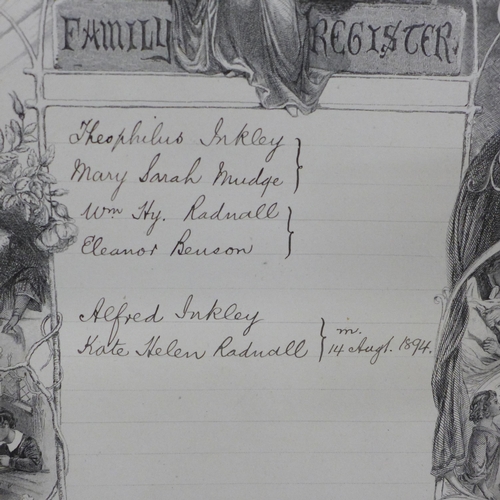 FAMILY REGISTER.
Theophilus Inkley }
Mary Sarah Mudge
Wm Hy. Radnall }
Eleanor Benson
Alfred Inkley } m.
Kate Helen Radnall 14 Augt. 1894.